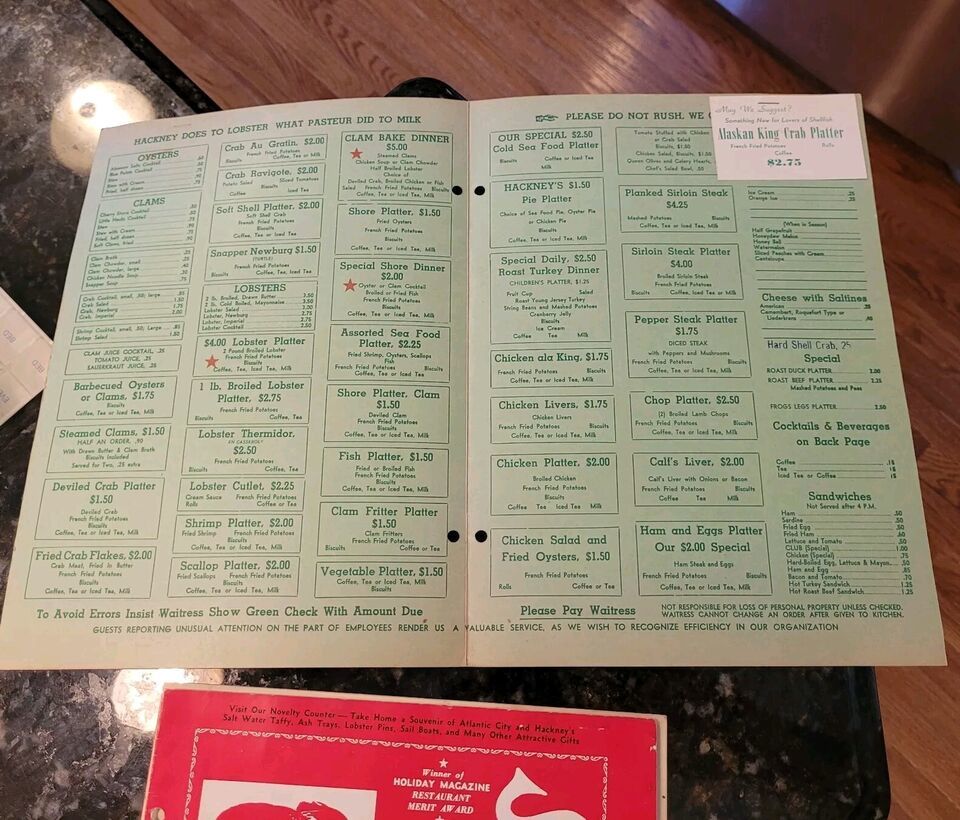 HACKNEY DOES TO LOBSTER WHAT PASTEUR DID TO MILK
OYSTERS
Blue Points Cocktail
Stew
Stew with Cream
Fried, half dozen
CLAMS
Cherry Stone Cocktail .50
Little Necks Cocktail .50
Stew .75
Stew with Cream .90
Fried, half dozen .75
Soft Clams, fried .90
Clam Broth .25
Clam Chowder, small .25
Clam Chowder, large .40
Chicken Noodle Soup .30
Snapper Soup .75
Crab Cocktail, small, .50; large
Crab Salad 1.50
Crab, Newburg 1.75
Crab, Imperial 2.00
Shrimp Cocktail, small, .50; Large .85
Shrimp Salad 1.50
CLAM JUICE COCKTAIL, .25
TOMATO JUICE, .25
SAUERKRAUT JUICE, .25
Barbecued Oysters
or Clams, $1.75
Biscuits
Coffee, Tea or Iced Tea, Milk
Steamed Clams, $1.50
HALF AN ORDER, .90
With Drawn Butter & Clam Broth
Biscuits Included
Served for Two, .25 extra
Deviled Crab Platter
$1.50
Deviled Crab
French Fried Potatoes
Biscuits
Coffee, Tea or Iced Tea, Milk
Fried Crab Flakes, $2.00
Crab Meat, Fried in Butter
French Fried Potatoes
Biscuits
Coffee, Tea or Iced Tea, Milk
Crab Au Gratin, $2.00
French Fried Potatoes
Biscuits Coffee, Tea, Milk
Crab Ravigote, $2.00
Potato Salad Sliced Tomatoes
Biscuits
Coffee Iced Tea
Soft Shell Platter, $2.00
Soft Shell Crab
French Fried Potatoes
Biscuits
Coffee, Tea or Iced Tea
Snapper Newburg $1.50
(TURTLE)
French Fried Potatoes
Biscuits Coffee, Iced Tea
LOBSTERS
2 lb. Broiled, Drawn Butter 3.50
2 lb. Cold Boiled, Mayonnaise 3.50
Lobster Salad 2.00
Lobster, Newburg 2.75
Lobster, Imperial 2.75
Lobster Cocktail 2.50
$4.00 Lobster Platter
2 Pound Broiled Lobster
French Fried Potatoes
Biscuits
Coffee, Tea, Iced Tea, Milk
1 lb. Broiled Lobster
Platter, $2.75
French Fried Potatoes
Biscuits Coffee or Tea
Lobster Thermidor,
EN CASSEROLE
$2.50
French Fried Potatoes
Biscuits Coffee, Tea
Lobster Cutlet, $2.25
Cream Sauce French Fried Potatoes
Rolls Coffee or Tea
Shrimp Platter, $2.00
Fried Shrimp French Fried Potatoes
Biscuits
Coffee, Tea, Iced Tea, Milk
Scallop Platter, $2.00
Fried Scallops French Fried Potatoes
Biscuits
Coffee, Tea, Iced Tea, Milk
CLAM BAKE DINNER
$5.00
Steamed Clams
Chicken Soup or Clam Chowder
Half Broiled Lobster
Choice of
Deviled Crab, Broiled Chicken or Fish
Salad French Fried Potatoes Biscuits
Coffee, Tea or Iced Tea, Milk
Shore Platter, $1.50
Fried Oysters
French Fried Potatoes
Biscuits
Coffee, Tea or Iced Tea, Milk
Special Shore Dinner
$2.00
Oyster or Clam Cocktail
Broiled or Fried Fish
French Fried Potatoes
Biscuits
Coffee, Tea or Iced Tea, Milk
Assorted Sea Food
Platter, $2.25
Fried Shrimp, Oysters, Scallops
Fish
French Fried Potatoes
Biscuits
Coffee, Tea or Iced Tea, Milk
Shore Platter, Clam
$1.50
Deviled Clam
French Fried Potatoes
Biscuits
Coffee, Tea or Iced Tea, Milk
Fish Platter, $1.50
Fried or Broiled Fish
French Fried Potatoes
Biscuits
Coffee, Tea or Iced Tea, Milk
Clam Fritter Platter
$1.50
Clam Fritters
French Fried Potatoes
Biscuits Coffee or Tea
Vegetable Platter, $1.50
Biscuits
Coffee, Tea or Iced Tea, Milk
To Avoid Errors Insist Waitress Show Green Check With Amount Due
PLEASE DO NOT RUSH, WE
OUR SPECIAL $2.50
Cold Sea Food Platter
Biscuits Coffee or Iced Tea
Milk
HACKNEY'S $1.50
Pie Platter
Choice of Sea Food Pie, Oyster Pie
or Chicken Pie
Biscuits
Coffee, Tea or Iced Tea, Milk
Special Daily, $2.50
Roast Turkey Dinner
CHILDREN'S PLATTER, $1.25
Fruit Cup Salad
Roast Young Jersey Turkey
String Beans and Mashed Potatoes
Cranberry Jelly
Biscuits
Ice Cream
Coffee Tea Milk
Chicken ala King, $1.75
French Fried Potatoes Biscuits
Coffee, Tea or Iced Tea, Milk
Chicken Livers, $1.75
Chicken Livers
French Fried Potatoes Biscuits
Coffee, Tea or Iced Tea, Milk
Chicken Platter, $2.00
Broiled Chicken
French Fried Potatoes
Biscuits
Coffee, Tea or Iced Tea, Milk
Chicken Salad and
Fried Oysters, $1.50
French Fried Potatoes
Rolls Coffee or Tea
Tomato Stuffed with Chicken
or Crab Salad
Biscuits, $1.50
Chicken Salad, Biscuits, $1.50
Queen Olives and Celery Hearts,
Chef's Salad Bowl, .50
Planked Sirloin Steak
$4.25
Mashed Potatoes Biscuits
Sirloin Steak Platter
$4.00
Broiled Sirloin Steak
French Fried Potatoes
Biscuits Coffee, Iced Tea or Milk
Pepper Steak Platter
$1.75
DICED STEAK
with Peppers and Mushrooms
French Fried Potatoes
Biscuits
Coffee, Tea or Iced Tea, Milk
Chop Platter, $2.50
(2) Broiled Lamb Chops
French Fried Potatoes
Biscuits
Coffee, Tea or Iced Tea, Milk
Calf's Liver, $2.00
Calf's Liver with Onions or Bacon
French Fried Potatoes Biscuits
Coffee Tea Milk
Ham and Eggs Platter
Our $2.00 Special
Ham Steak and Eggs
French Fried Potatoes Biscuits
Coffee, Tea or Iced Tea, Milk
May We Suggest?
Something New for Lovers of Shellfish
Alaskan King Crab Platter
French Fried Potatoes Rolls
Coffee
$2.75
Ice Cream .25
Orange Ice .25
(When in Season)
Half Grapefruit
Honeydew Melon
Honey Ball
Watermelon
Sliced Peaches with Cream
Cantaloupe
Cheese with Saltines
American .25
Camembert, Roquefort Type or
Liederkranz .40
Hard Shell Crab, 25
Special
ROAST DUCK PLATTER 3.00
ROAST BEEF PLATTER 2.25
Mashed Potatoes and Peas
FROGS LEGS PLATTER 2.50
Cocktails & Beverages
on Back Page
Coffee
Tea
Iced Tea or Coffee
Sandwiches
Not Served after 4 P.M.
Ham .50
Sardine .50
Fried Egg .50
Fried Ham .60
Lettuce and Tomato .50
CLUB (Special) 1.00
Chicken (Special) .75
Hard-Boiled Egg, Lettuce & Mayon. .50
Ham and Egg .85
Bacon and Tomato .70
Hot Turkey Sandwich 1.25
Hot Roast Beef Sandwich 1.25
Please Pay Waitress
NOT RESPONSIBLE FOR LOSS OF PERSONAL PROPERTY UNLESS CHECKED.
WAITRESS CANNOT CHANGE AN ORDER AFTER GIVEN TO KITCHEN.
GUESTS REPORTING UNUSUAL ATTENTION ON THE PART OF EMPLOYEES RENDER US A VALUABLE SERVICE, AS WE WISH TO RECOGNIZE EFFICIENCY IN OUR ORGANIZATION
Visit Our Novelty Counter — Take Home a Souvenir of Atlantic City and Hackney's
Salt Water Taffy, Ash Trays, Lobster Pins, Sail Boats, and Many Other Attractive Gifts
Winner of
HOLIDAY MAGAZINE
RESTAURANT
MERIT AWARD